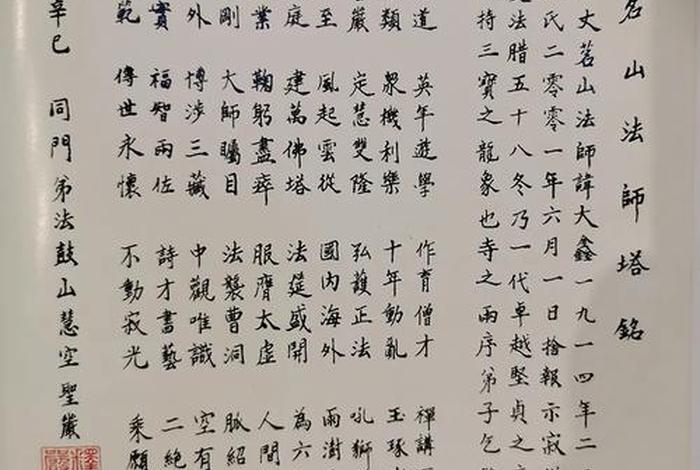 茗山法師塔銘
丈茗山法師諱大鑫一九一四年二
氏二零零一年六月一日捨報示寂
法腊五十八冬乃一代卓越堅貞之
持三寶之龍象也寺之兩序弟子乞
道 英年遊學 作育僧才 禪講
類 眾機利樂 十年動亂 玉琢
嚴 定慧雙隆 弘護正法 吼獅
至 風起雲從 國內海外 兩澍
庭 建萬佛塔 法筵盛開 為六
業 鞠躬盡瘁 服膺太虛 人間
剛 大師矚目 法襲曹洞 脈紹
外 博涉三藏 中觀唯識 空有
實 福智兩佐 詩才書藝 二絕
範 傳世永懷 不動寂光 乘願
辛巳 同門弟法鼓山慧空聖嚴